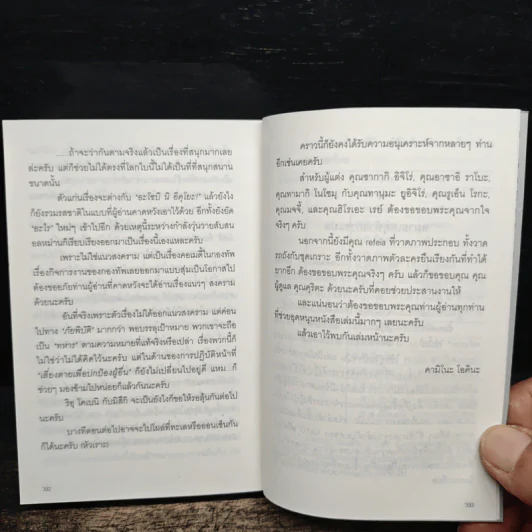 ......ถ้าจะว่ากันตามจริงแล้วเป็นเรื่องที่สนุกมากเลย
ล่ะครับ แต่ก็ช่วยไม่ได้ตรงที่โลกใบนี้ไม่ได้เป็นที่ที่สนุกสนาน
ขนาดนั้น
ตัวแก่นเรื่องจะต่างกับ "อะโซบี นิ อิคุโยะ!" แล้วยังไง
ก็ยังรวมรสชาติในแบบที่ผู้อ่านคาดหวังเอาไว้ด้วย อีกทั้งยังยัด
"อะไร" ใหม่ๆ เข้าไปอีก ด้วยเหตุนี้ระหว่างกำลังวุ่นวายสับสน
อลหม่านก็เรียบเรียงออกมาเป็นเรื่องนี้เองแหละครับ
เพราะไม่ใช่แนวสงคราม แต่เป็นเรื่องคอเมดี้ในกองทัพ
เรื่องกิจการงานของกองทัพเลยออกมาแบบสุ่มเป็นโอกาสไป
ต้องขออภัยท่านผู้อ่านที่คาดหวังจะได้อ่านแนวๆ สงคราม
ด้วยนะครับ
อันที่จริงเพราะตัวเรื่องไม่ได้ออกแนวสงคราม แต่ค่อน
ไปทาง "ภัยพิบัติ" มากกว่า พอบรรลุเป้าหมาย พวกเขาจะถือ
เป็น "ทหาร" ตามความหมายที่แท้จริงหรือเปล่า เรื่องพวกนี้ก็
ไม่ใช่ว่าไม่ได้คิดไว้นะครับ แต่ในด้านของการปฏิบัติหน้าที่
"เสี่ยงตายเพื่อปกป้องผู้อื่น" ก็ยังไม่เปลี่ยนไปอยู่ดี แหม.. ก็
ช่วยๆ มองข้ามไปหน่อยก็แล้วกันนะครับ
ริซุ โคเบนิ กับมิสึกิ จะเป็นยังไงก็ขอให้รอลุ้นกันต่อไป
นะครับ
บางทีตอนต่อไปอาจจะไปโผล่ที่ทะเลหรือออนเซ็นกัน
ก็ได้นะครับ (หัวเราะ)
332
คราวนี้ก็ยังคงได้รับความอนุเคราะห์จากหลายๆ ท่าน
อีกเช่นเคยครับ
สำหรับผู้แต่ง คุณซากากิ อิจิโร่, คุณอาซาอิ ราโบะ,
คุณทามากิ โนโซมุ กับคุณทานุมะ ยูอิจิโร่, คุณรูเอ็น โรกะ,
คุณมจจี้, และคุณฮิโรเอะ เรย์ ต้องขอขอบพระคุณจากใจ
จริงๆ ครับ
นอกจากนี้ยังมีคุณ refeia ที่วาดภาพประกอบ ทั้งวาด
รถถังกับชุดเกราะ อีกทั้งวาดภาพตัวละครยืนเรียงกันที่ทำได้
ยากอีก ต้องขอขอบพระคุณจริงๆ ครับ แล้วก็ขอขอบคุณ คุณ
ผู้ดูแล คุณคุริตะ ด้วยนะครับที่คอยช่วยประสานงานให้
และแน่นอนว่าต้องขอขอบพระคุณท่านผู้อ่านทุกท่าน
ที่ช่วยอุดหนุนหนังสือเล่มนี้มากๆ เลยนะครับ
แล้วเอาไว้พบกันเล่มหน้านะครับ
คามิโนะ โอคินะ
333